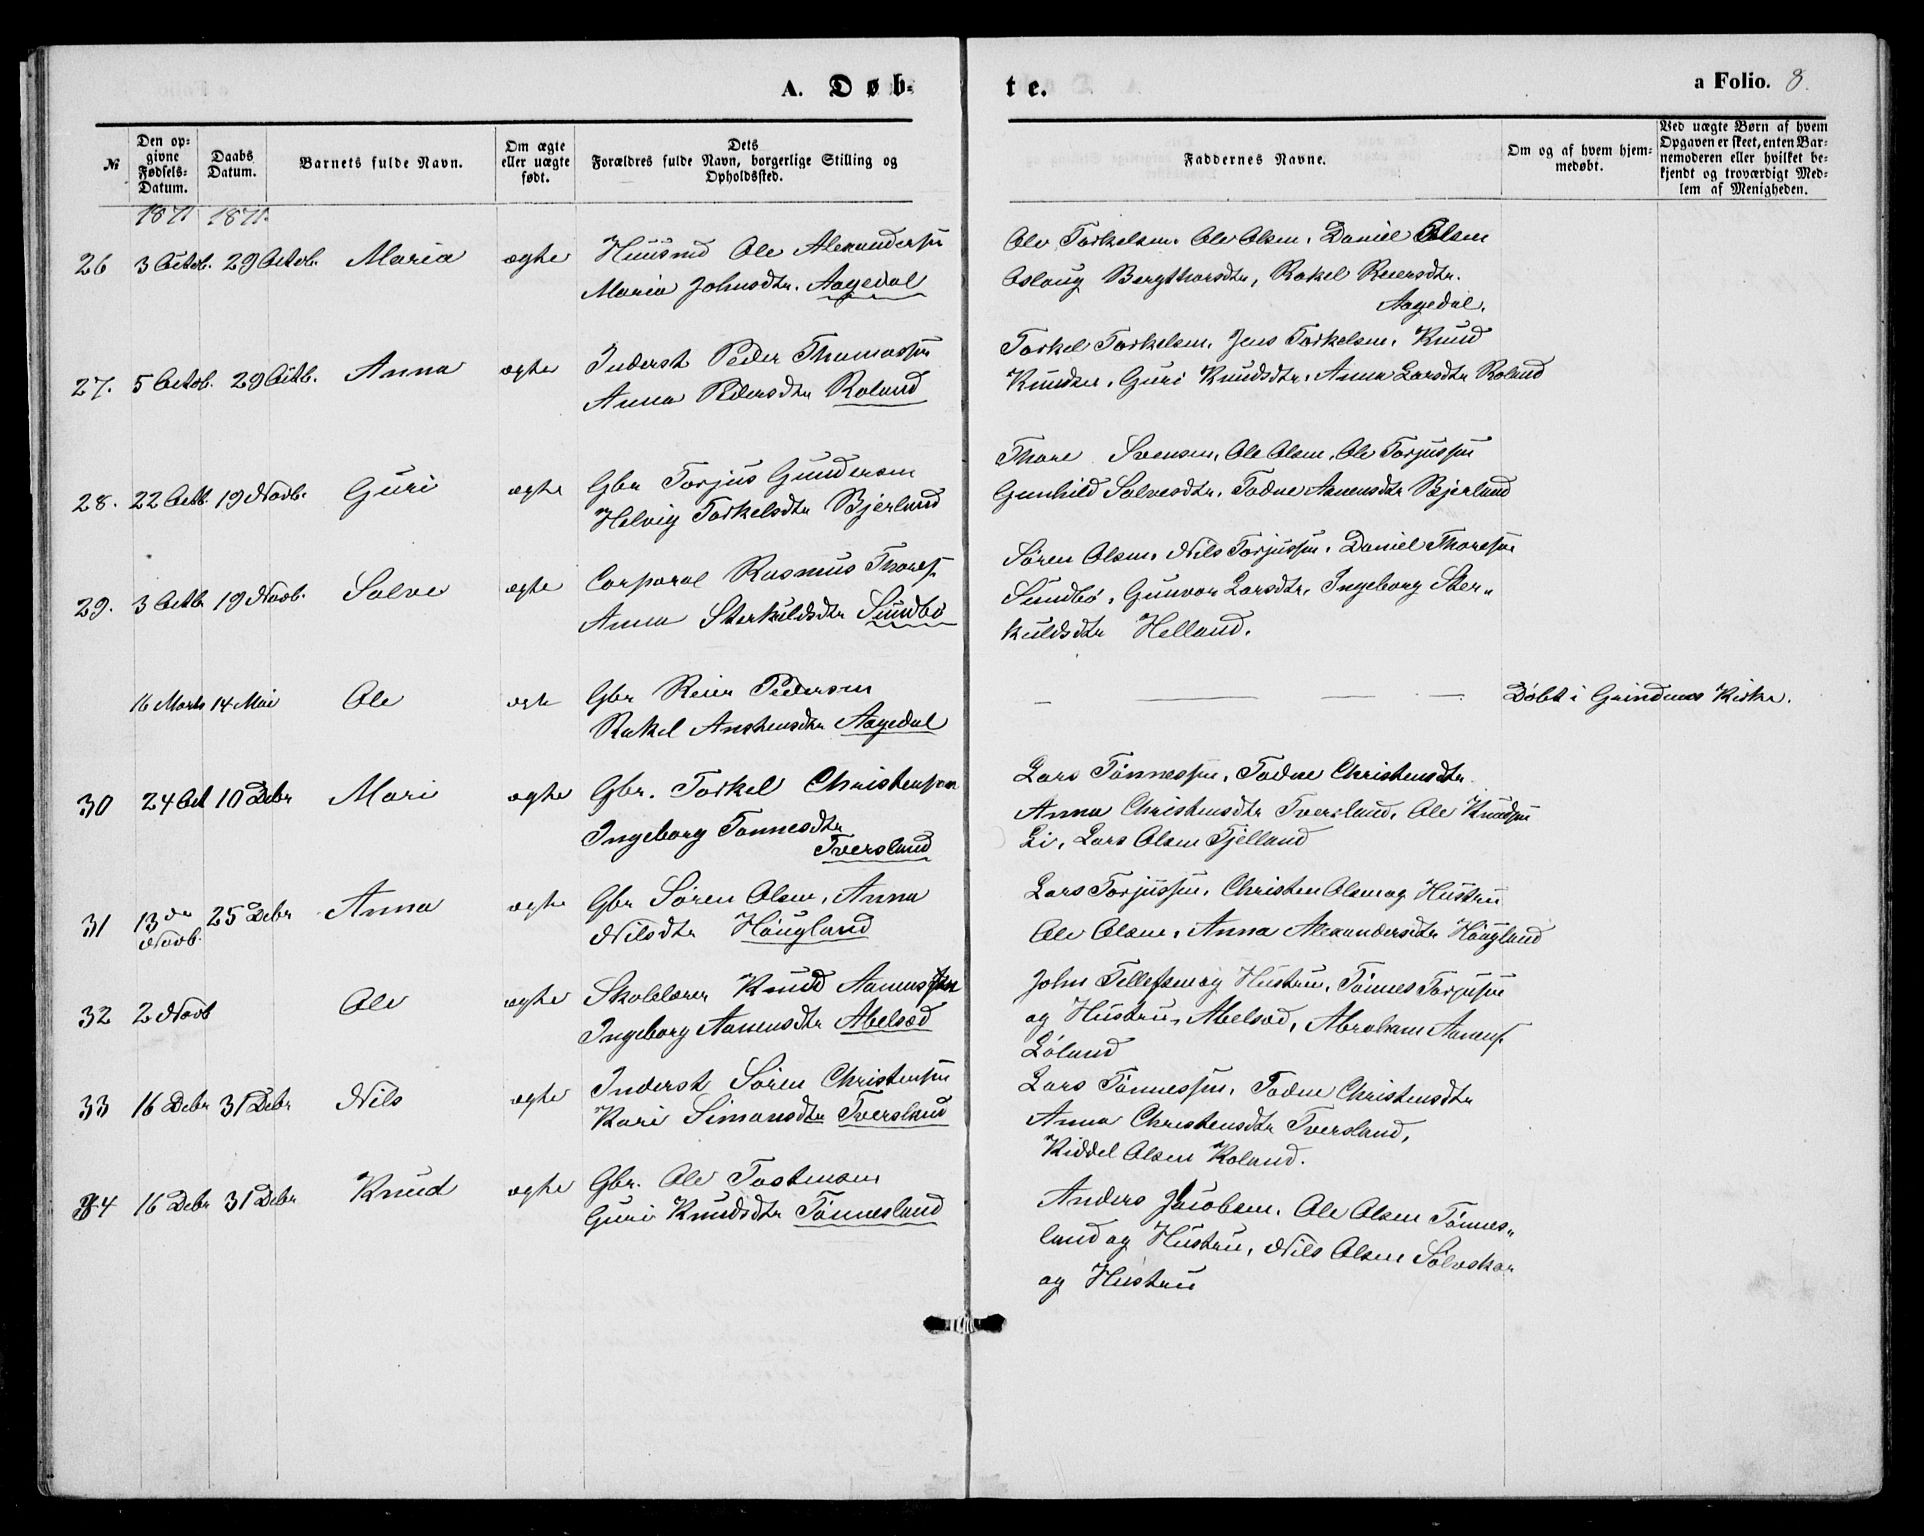 A. Døb-
te.
a Folio. 8.
№
Den opgivne Fødsels-Datum.
Daabs Datum.
Barnets fulde Navn.
Om ægte eller uægte født.
Dets Forældres fulde Navn, borgerlige Stilling og Opholdssted.
Faddernes Navne.
Om og af hvem hjemmedøbt.
Ved uægte Børn af hvem Opgaven er skeet, enten Barnemoderen eller hvilket bekjendt og troværdigt Medlem af Menigheden.
1871 1871.
26 3 Octob. 29 Octob. Maria ægte Huusmd Ole Alexandersen
Maria Johnsdtr. Aagedal
Ole Torkelsen. Ole Olsen. Daniel Olsen
Aslaug Bergthorsdtr, Rakel Reiersdtr.
Aagedal.
27. 5 Octob. 29 Octb. Anna ægte Inderst Peder Thomassen
Anna Pedersdtr Roland
Torkel Torkelsen. Jens Torkelsen. Knud
Knudsen. Guri Knudsdtr. Anna Larsdtr Roland
28. 22 Octb. 19 Novb. Guri ægte Gbr Torjus Gundersen
Helvig Torkelsdtr Bjerland
Thore Svensen. Ole Olsen. Ole Torjussen
Gunhild Salvesdtr. Todne Aanensdtr Bjerland
29. 3 Octb. 19 Novb. Salve ægte Corporal Rasmus Thores.
Anna Sterkuldsdtr Sundbø
Søren Olsen. Nils Torjussen. Daniel Thoresen
Sundbø. Gunvor Larsdtr. Ingeborg Ster„
kuldsdtr Helland.
16 Marts 14 Mai Ole ægte Gbr Reier Pedersen
Rakel Anstensdtr Aagedal
Døbt i Grindems Kirke.
30 24 Oct 10 Debr Mari ægte Gbr. Torkel Christensen
Ingeborg Tønnesdtr
Tversland
Lars Tønnessen. Todne Christensdtr.
Anna Christensdtr Tversland. Ole Knudsen
Li, Lars Olsen Fjelland
31 13de Novb. 25 Debr Anna ægte Gbr Søren Olsen. Anna
Nilsdtr Høugland
Lars Torjussen. Christen Olsen og Hustru
Ole Olsen. Anna Alexandersdtr Høugland
32 2 Novb Ole ægte Skolelærer Knud Aanensen
Ingeborg Aanensdtr Abelsæd
John Tellefsen og Hustru. Tønnes Torjusen
og Hustru. Abelsæd, Abraham Aanens.
Løland
33 16 Debr 31 Debr Nils ægte Inderst Søren Christensen
Kari Simonsdtr Tversland
Lars Tønnessen. Todne Christensdtr
Anna Christensdtr Tversland,
Kiddel Olsen Roland.
34 16 Debr 31 Debr Knud ægte Gbr. Ole Tostensen
Guri Knudsdtr Tønnesland
Anders Jacobsen. Ole Olsen Tønnes„
land og Hustru, Nils Olsen Sølvskar
og Hustru